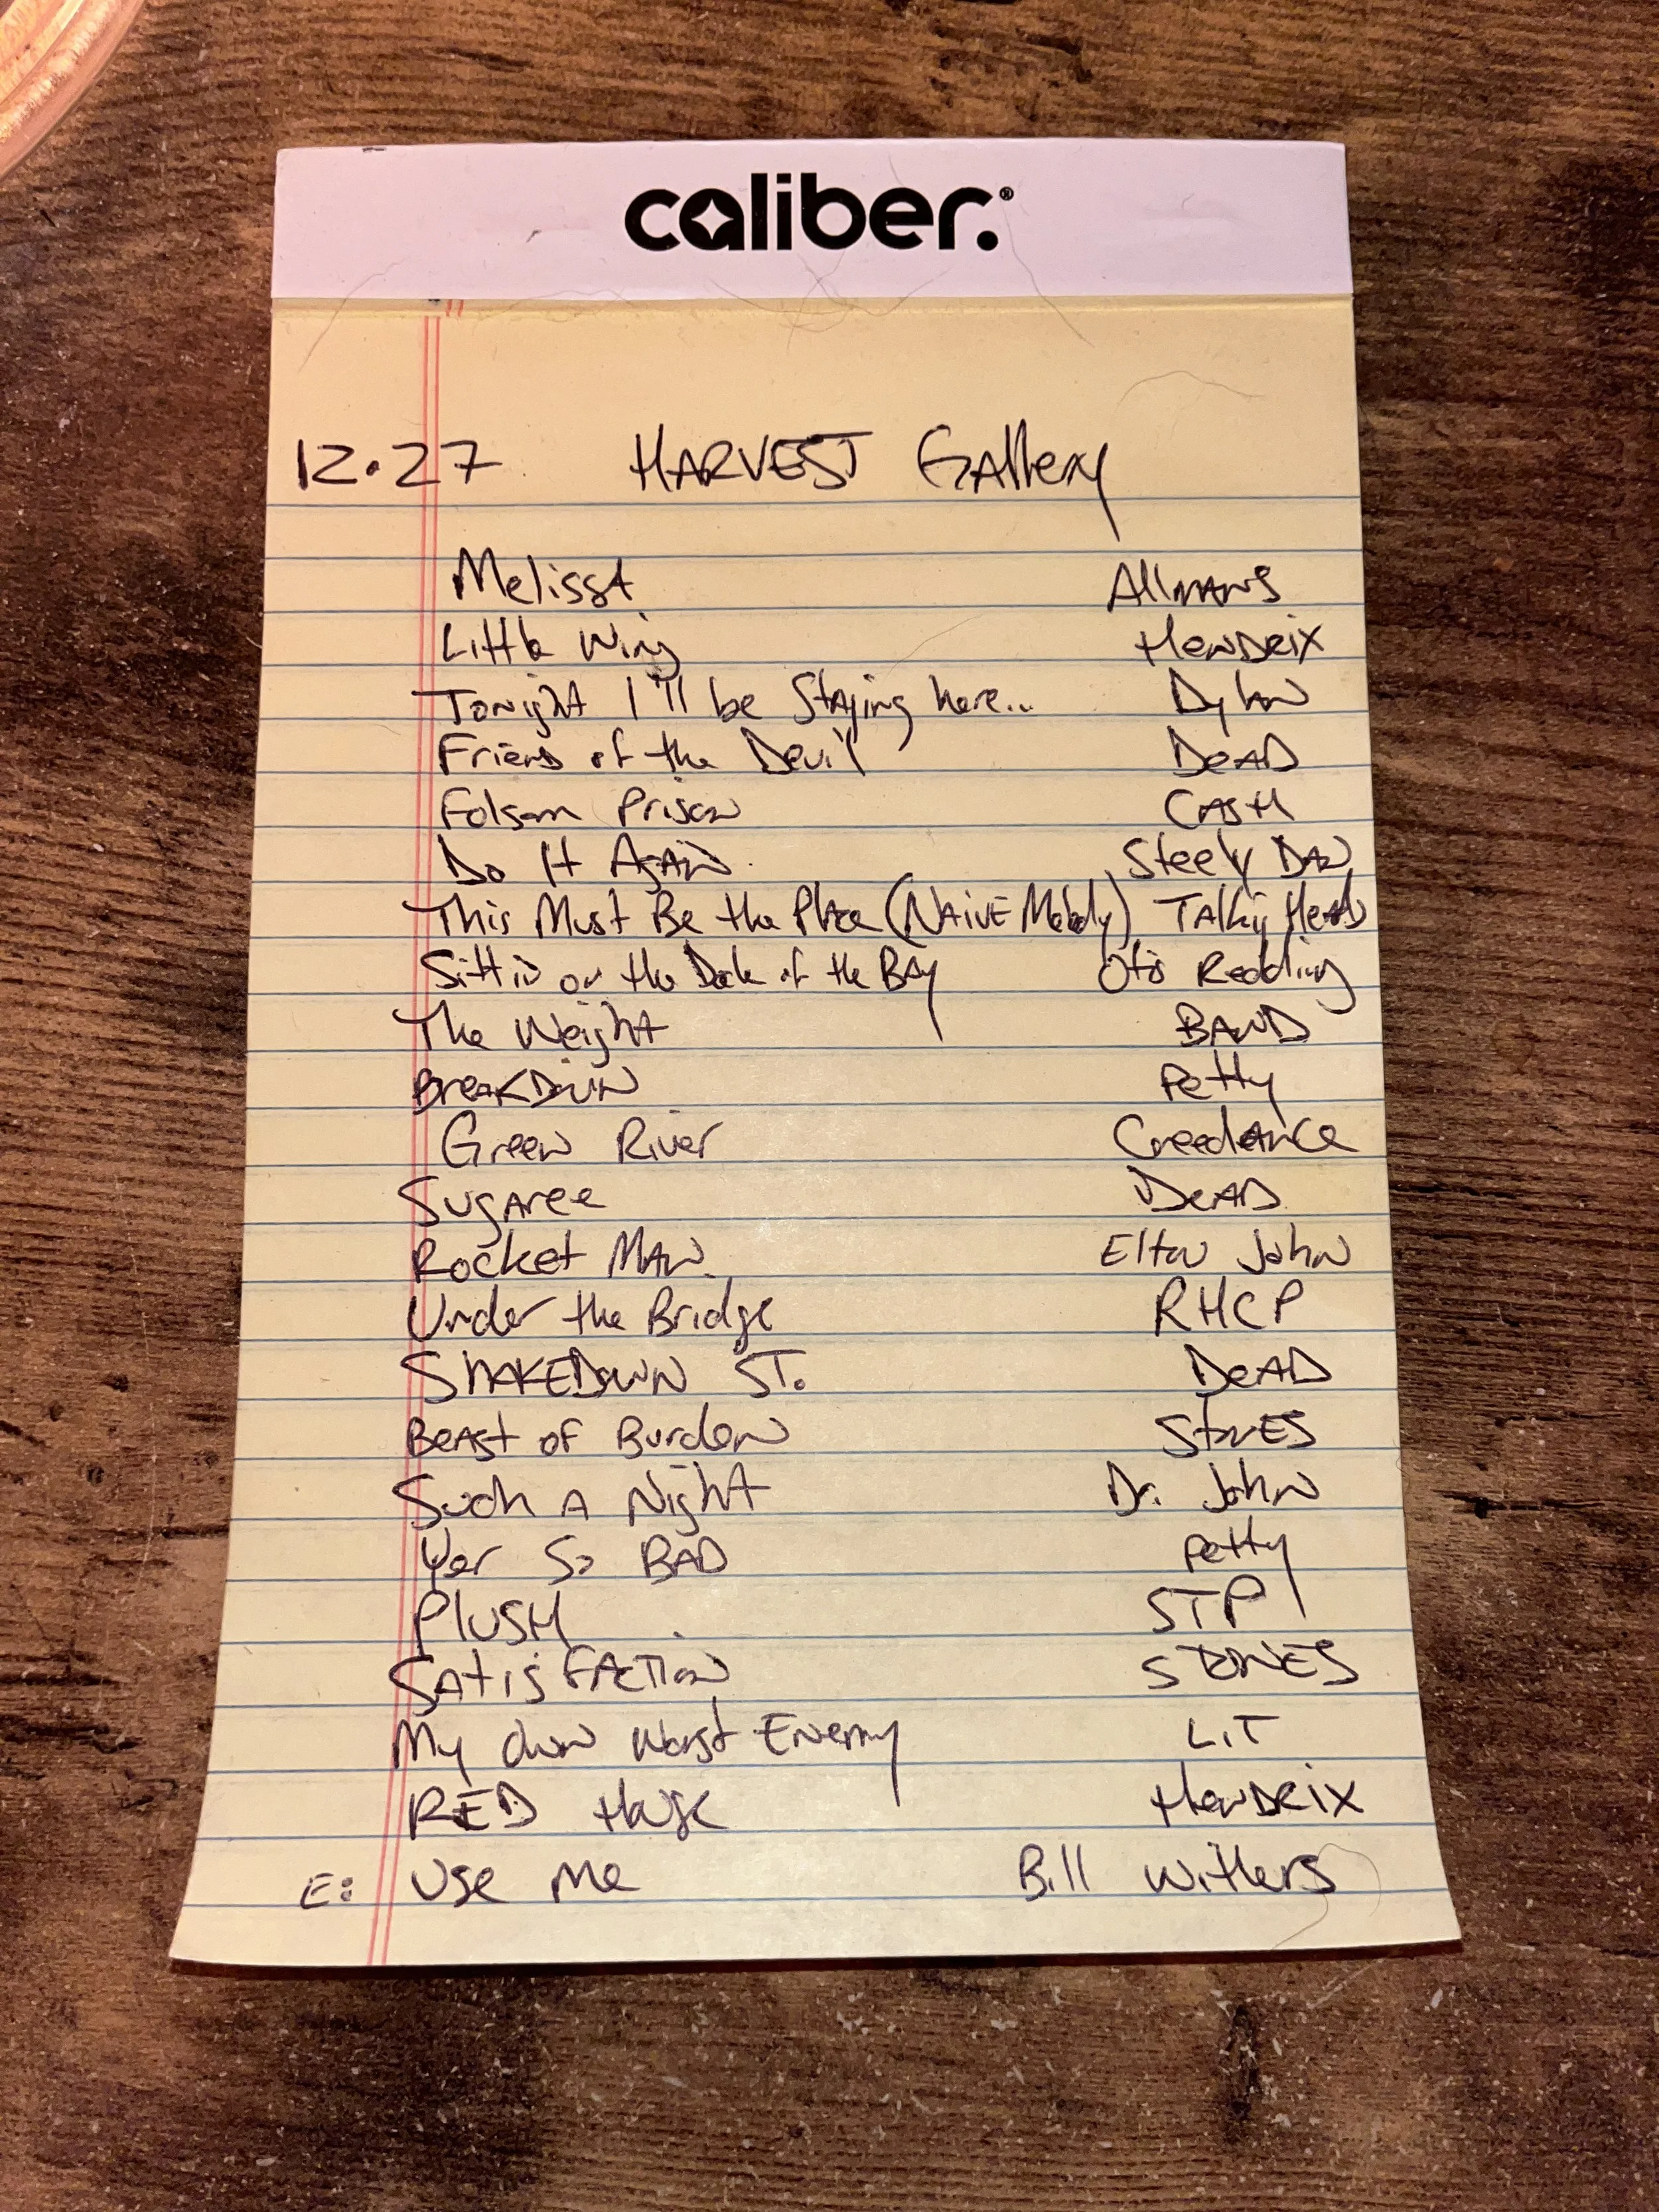 caliber.®
12.27 HARVEST Gallery
Melissa Allmans
Little Wing Hendrix
Tonight I'll be Staying here... Dylan
Friend of the Devil DEAD
Folsom Prison CASH
Do It Again Steely Dan
This Must Be the Place (NAIVE Melody) TAlking Heads
Sittin on the Dock of the BAy Otis Redding
The Weight BAND
BreAKDown Petty
Green River Creedence
Sugaree DEAD
Rocket MAN Elton John
Under the Bridge RHCP
SHAKEDOWN ST. DEAD
BeAst of Burden StoNES
Such A Night Dr. John
Yer So BAD Petty
PLUSH STP
SAtisfACTion STONES
My Own Worst Enemy LIT
RED House HenDRIX
E: Use Me Bill Withers